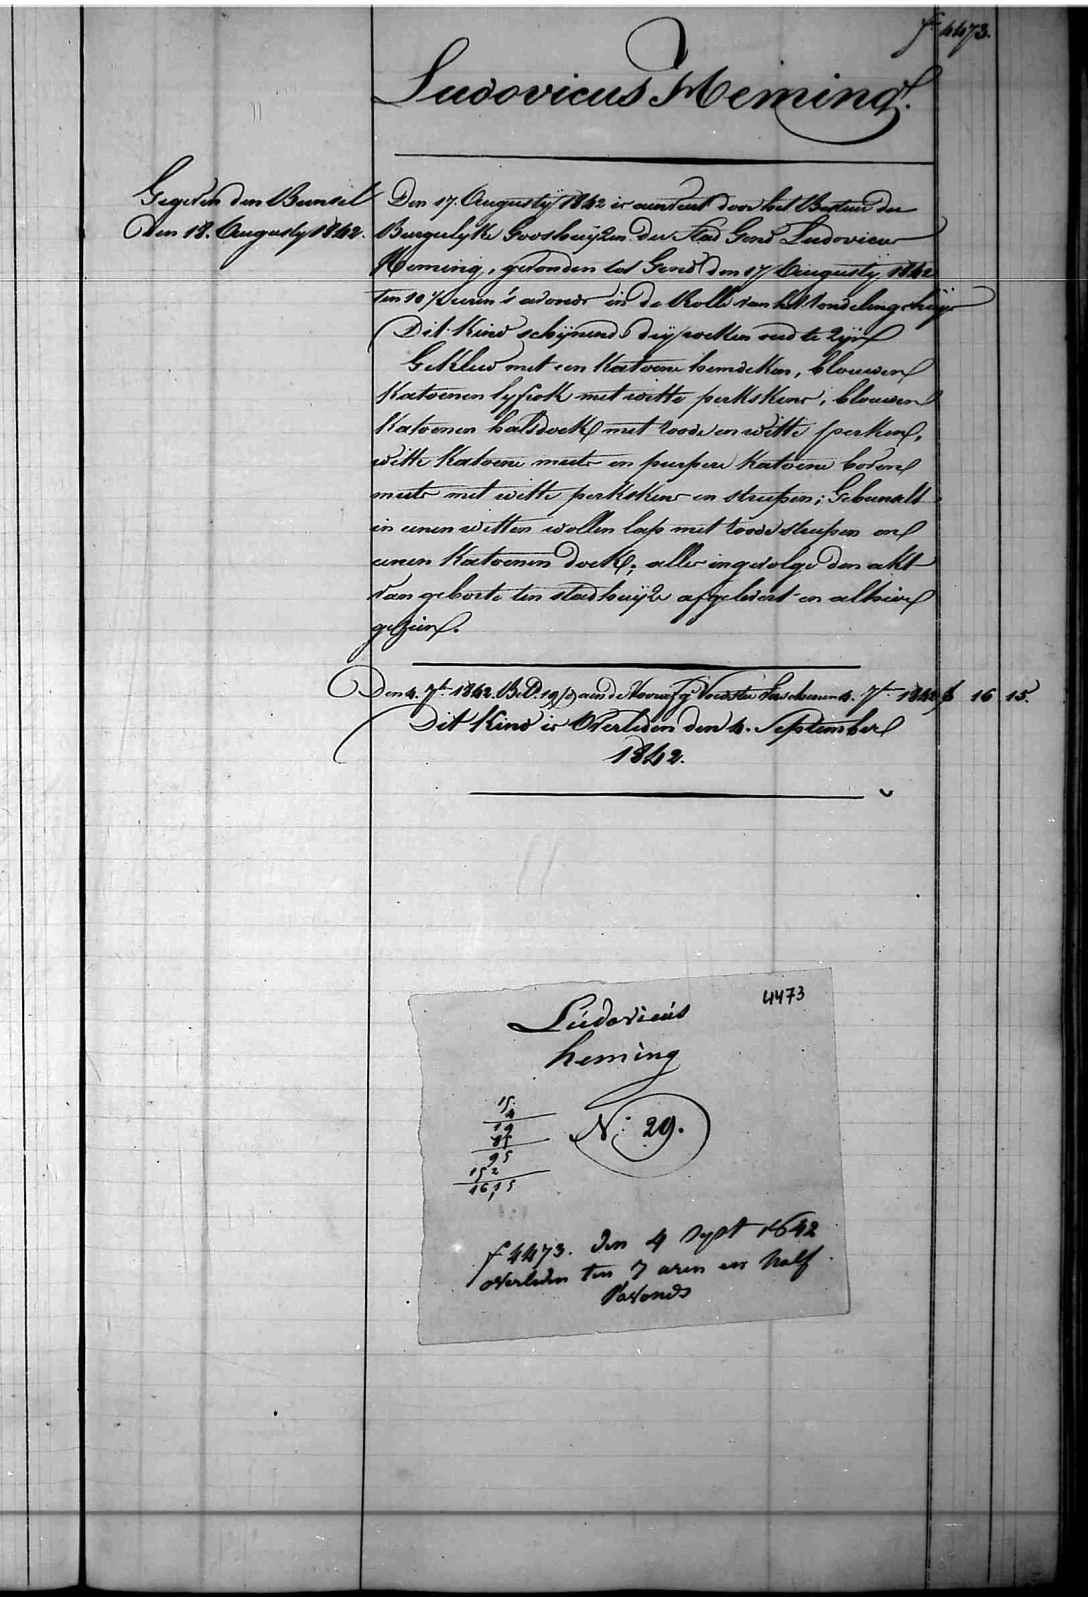 f° 4473.
Ludovicus Heming.
Gegeven den Bunsel
den 18. Augusty 1842.
Den 17. Augusty 1842 is aenveert door het Bestuer der
Burgerlyke Godshuijzen der Stad Gend Ludovicus
Heming, gevonden tot Gend den 17 Augusty 1842
ten 10 ½ uren 's avonds in de Rolle van het Vondelingshuijs
Dit Kind schijnend dry weken oud te zijn
Gekleed met een Katoene hemdeken, blauwen
Katoenen lyfrok met witte perkskens, blauwen
Katoenen halsdoek met roode en witte perken,
witte Katoene muts en purpere Katoene boven
muts met witte perkskens en streepen; Gebunselt
in eenen witten wollen lap met roode streepen en
eenen Katoenen doek; alles ingevolge den akt
van geborte ten stadhuijze afgelevert en alhier
gezien.
Den 4. 7br 1842. B.D. 19/d aen de Voorns Voedster Verschenen 4. 7br 1842 f 16 15.
Dit Kind is Overleden den 4. September
1842.
4473
Ludovicus
heming
15
4
19
85
95
152
16,15
N: 29.
f 4473. den 4 Sept 1842
overleden ten 7 uren en half
s'avonds